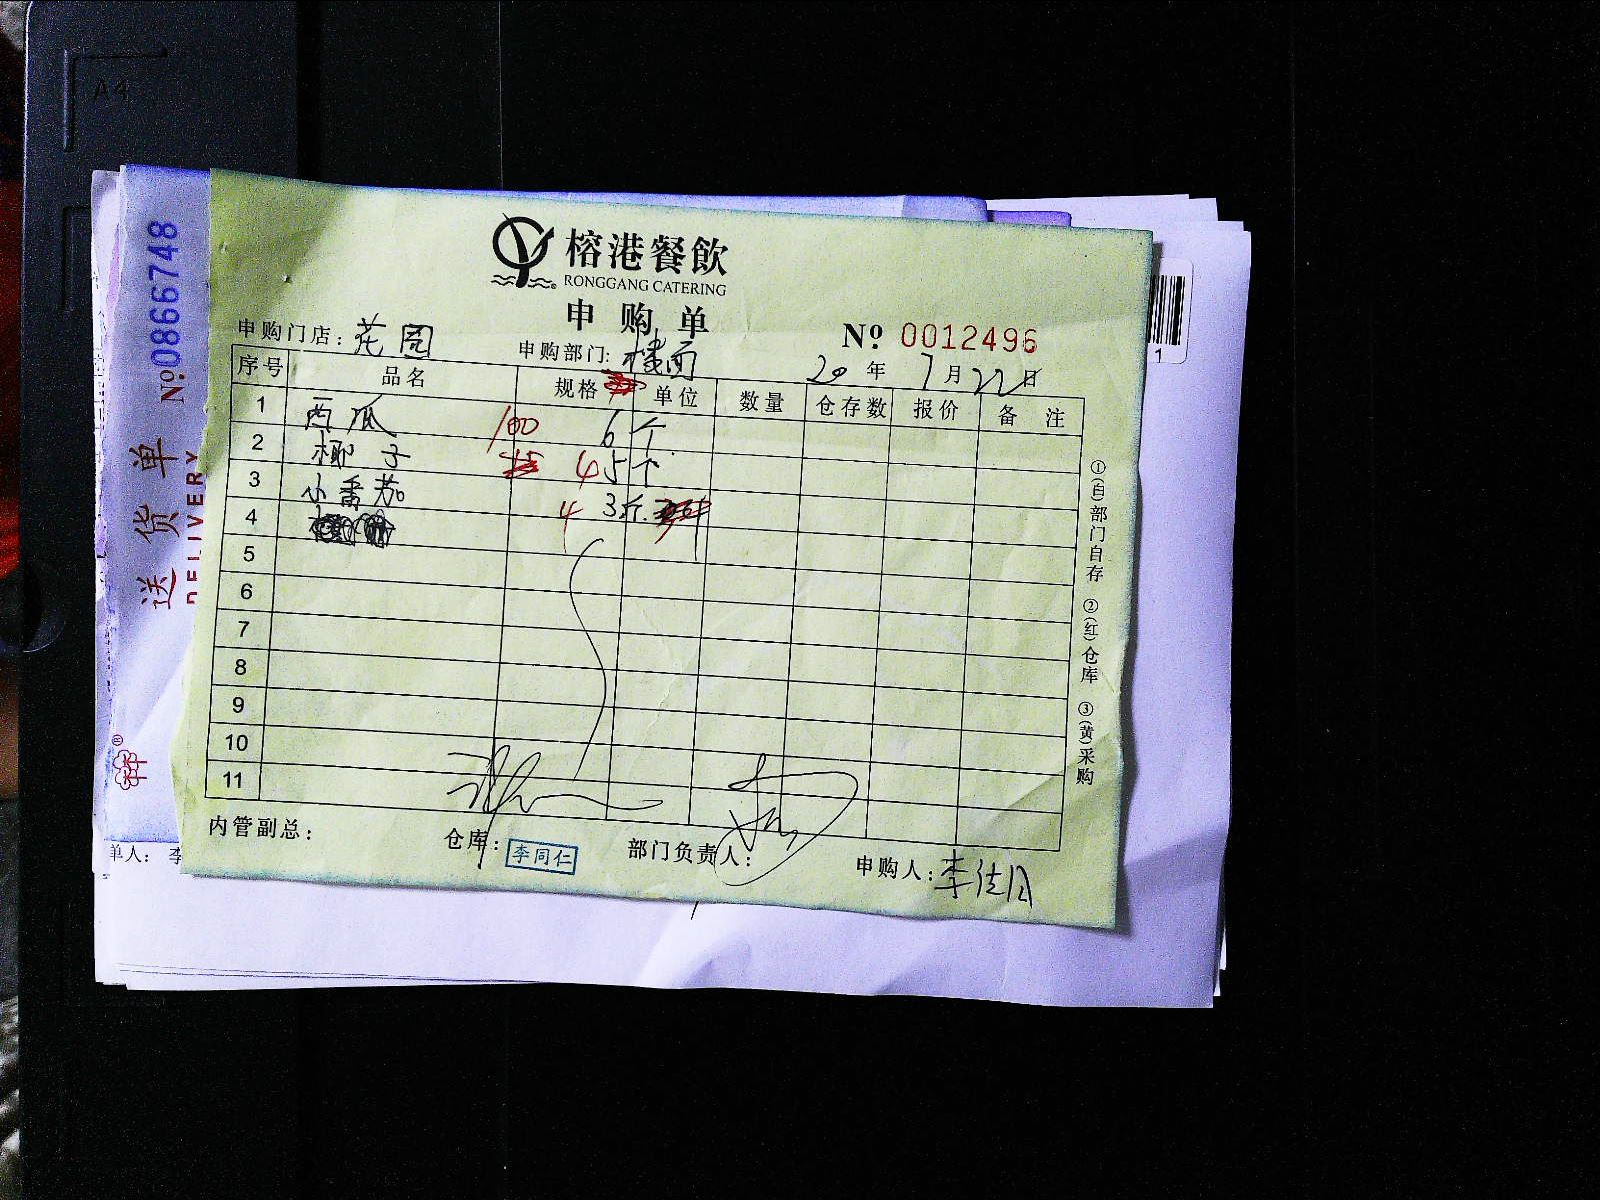 A4
榕港餐飲
RONGGANG CATERING
申购单
申购门店：花园
申购部门：楼面
№ 0012496
20年7月22日
序号 品名 规格 单位 数量 仓存数 报价 备注
1 西瓜 100 6个
2 椰子 4 5个
3 小番茄 4 3斤
4
5
6
7
8
9
10
11
内管副总：
仓库：李同仁
部门负责人：
申购人：李佳
①(白)部门自存 ②(红)仓库 ③(黄)采购
№ 0866748
送货单
DELIVERY
单人：李
1